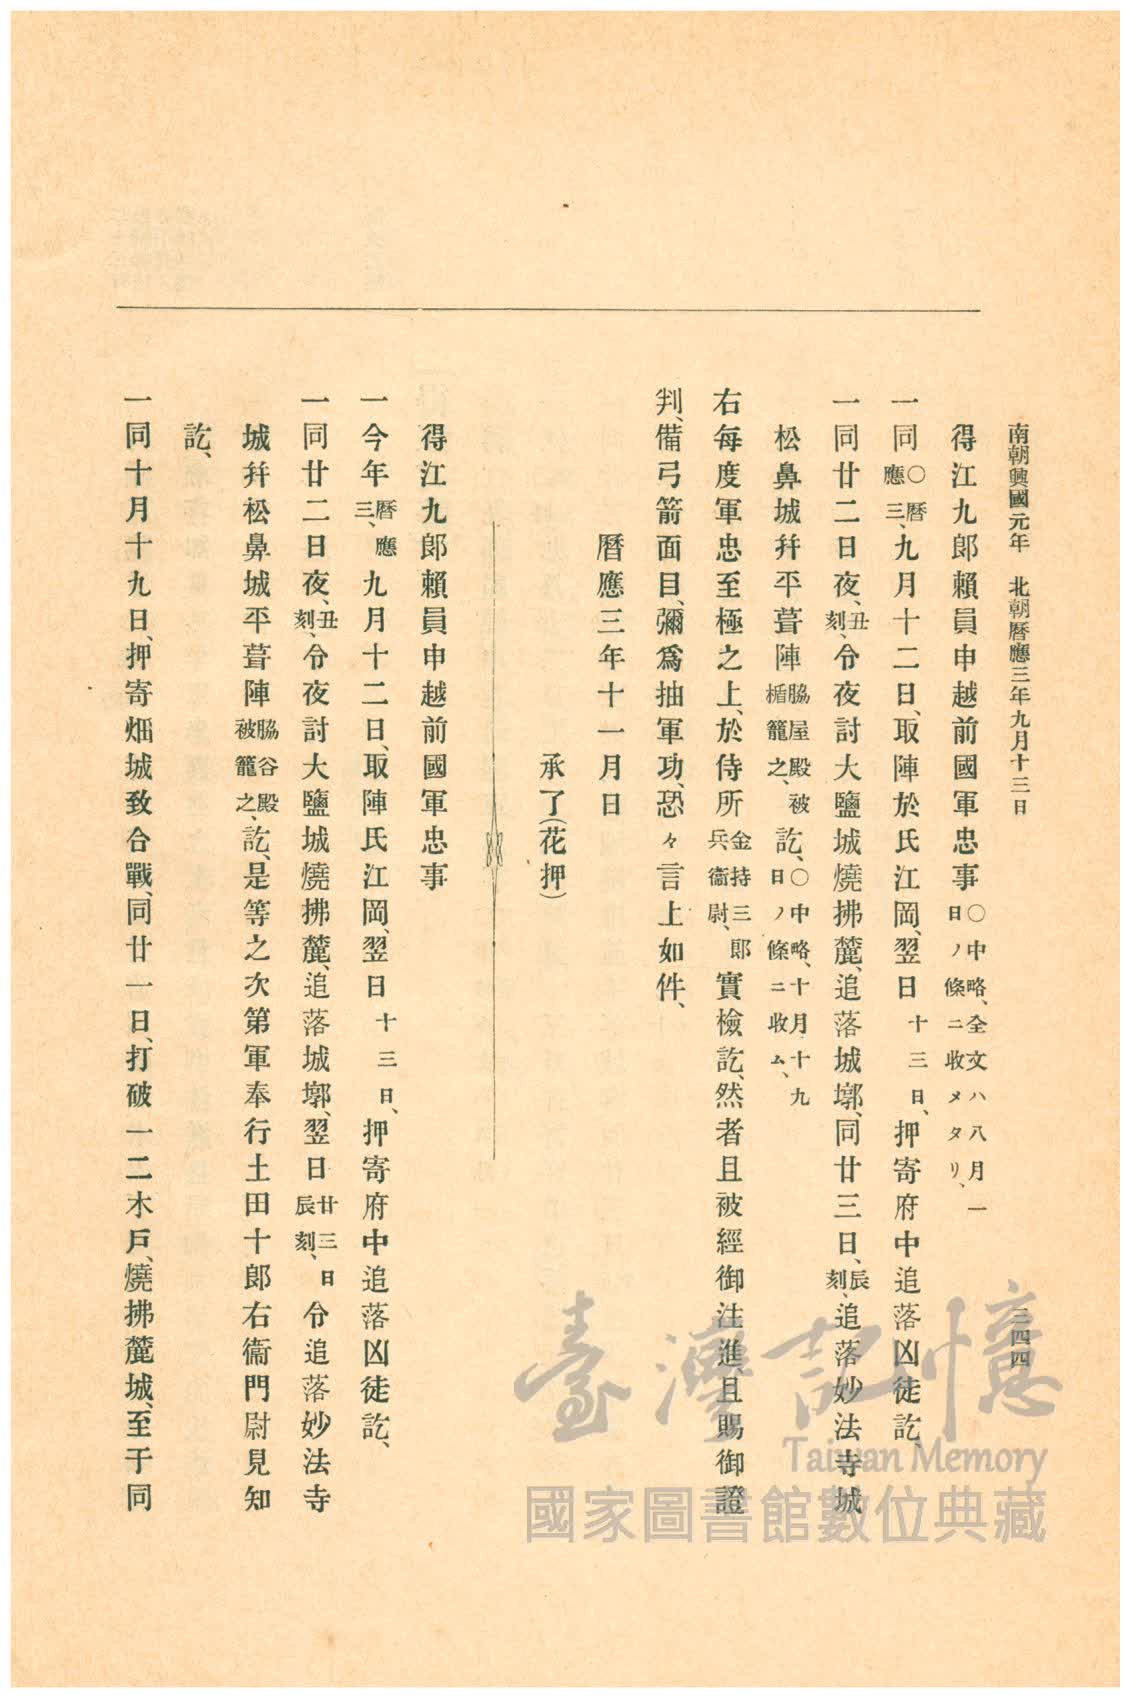 南朝興國元年 北朝曆應三年九月十三日 三四四
得江九郎賴員申越前國軍忠事〇中略、全文ハ八月一日ノ條ニ收メタリ、
一同〇曆應三、九月十二日、取陣於氏江岡、翌日十三日、押寄府中追落凶徒訖、
一同廿二日夜、丑刻、令夜討大鹽城燒拂麓、追落城墎、同廿三日、辰刻、追落妙法寺城
松鼻城幷平葺陣脇屋殿被楯籠之、訖、〇中略、十月十九日ノ條ニ收ム、
右每度軍忠至極之上、於侍所金持三郎兵衞尉、實檢訖、然者且被經御注進且賜御證
判、備弓箭面目、彌爲抽軍功、恐々言上如件、
曆應三年十一月日
承了(花押)
得江九郎賴員申越前國軍忠事
一今年曆應三、九月十二日、取陣氏江岡、翌日十三日、押寄府中追落凶徒訖、
一同廿二日夜、丑刻、令夜討大鹽城燒拂麓、追落城墎、翌日廿三日辰刻、令追落妙法寺
城幷松鼻城平葺陣脇谷殿被籠之、訖、是等之次第軍奉行土田十郎右衞門尉見知
訖、
一同十月十九日、押寄畑城致合戰、同廿一日、打破一二木戶、燒拂麓城、至于同
臺灣記憶
Taiwan Memory
國家圖書館數位典藏